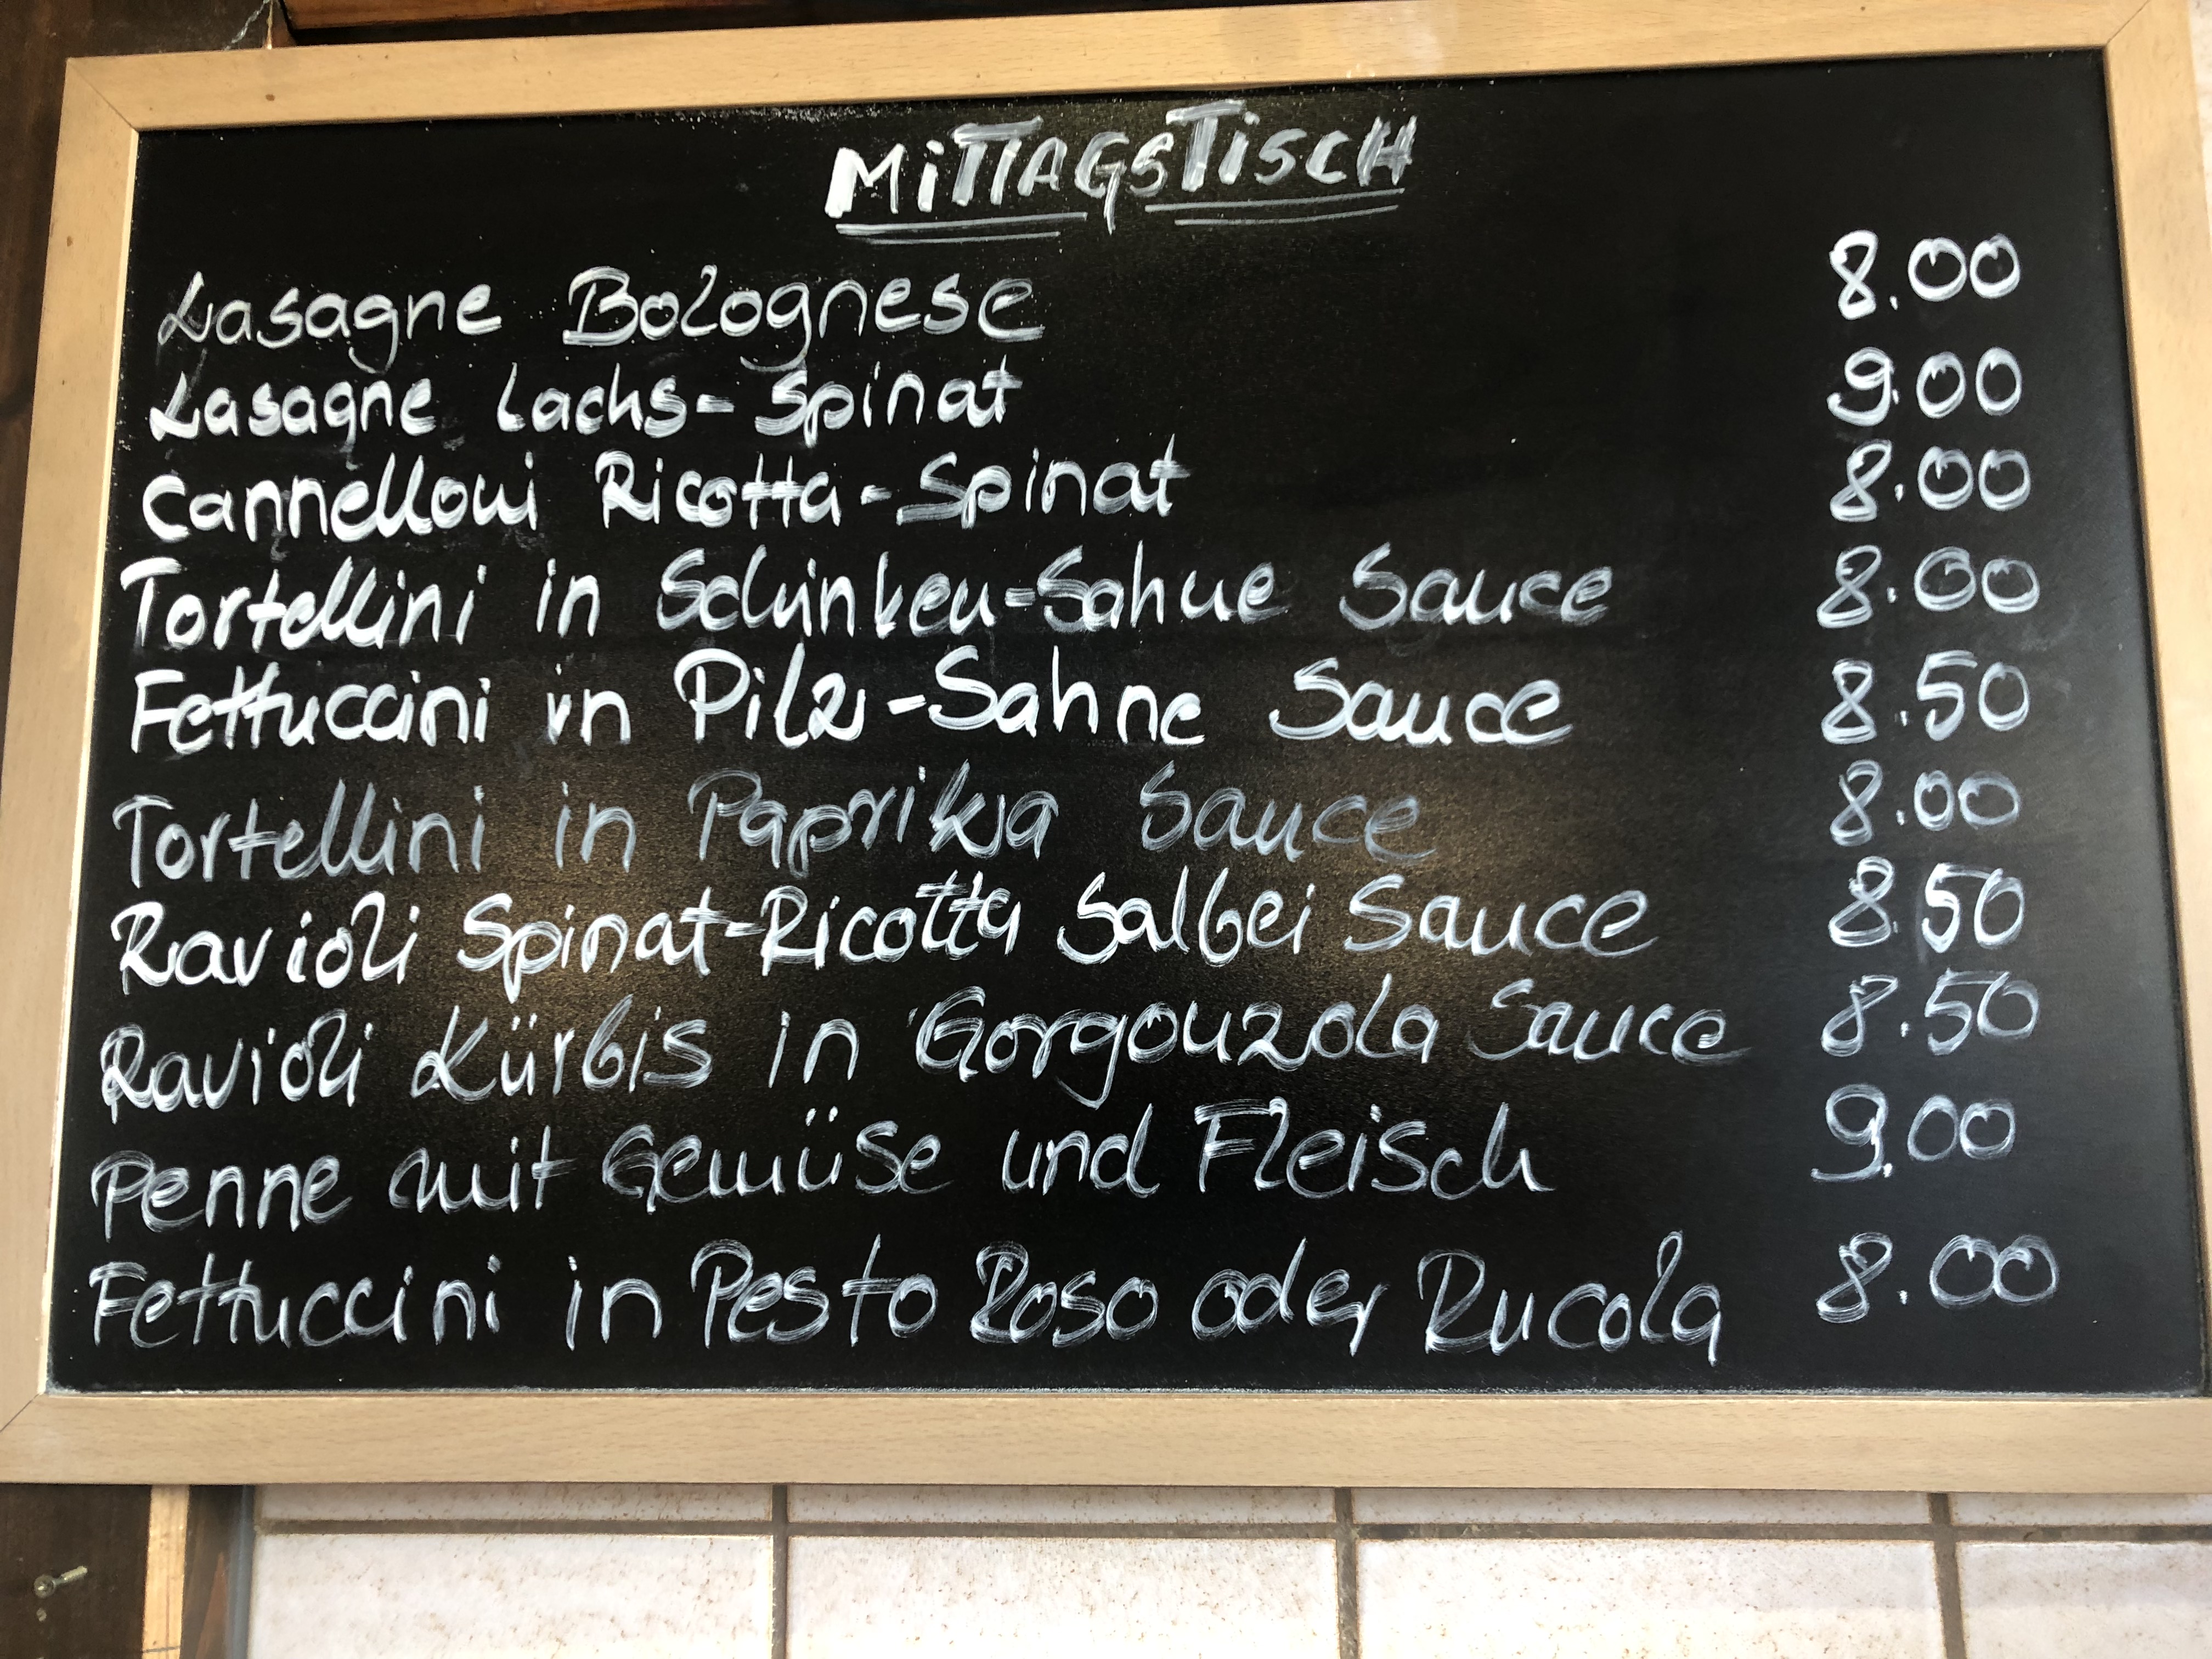 MiTTAGSTiSCH
Lasagne Bolognese 8.00
Lasagne Lachs-Spinat 9.00
Cannelloni Ricotta-Spinat 8.00
Tortellini in Schinken-Sahne Sauce 8.00
Fettuccini in Pilz-Sahne Sauce 8.50
Tortellini in Paprika Sauce 8.00
Ravioli Spinat-Ricotta Salbei Sauce 8.50
Ravioli Kürbis in Gorgonzola Sauce 8.50
Penne mit Gemüse und Fleisch 9.00
Fettuccini in Pesto Roso oder Rucola 8.00